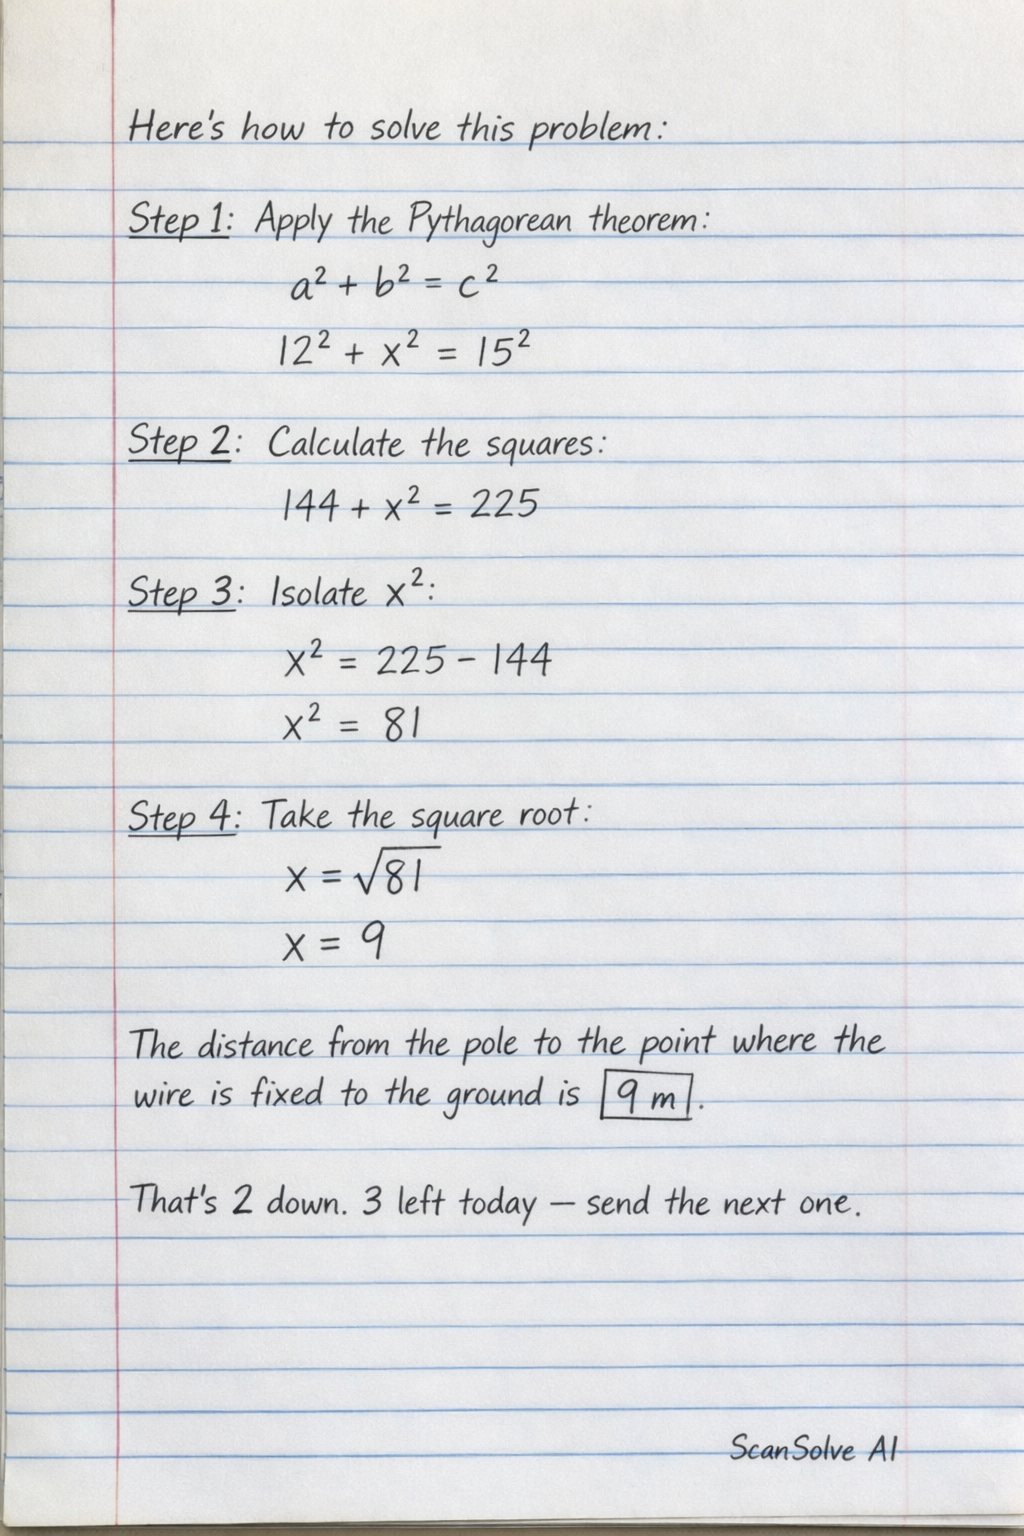 Here's how to solve this problem:
Step 1: Apply the Pythagorean theorem:
a² + b² = c²
12² + x² = 15²
Step 2: Calculate the squares:
144 + x² = 225
Step 3: Isolate x²:
x² = 225 - 144
x² = 81
Step 4: Take the square root:
x = √81
x = 9
The distance from the pole to the point where the
wire is fixed to the ground is 9 m.
That's 2 down. 3 left today — send the next one.
ScanSolve AI